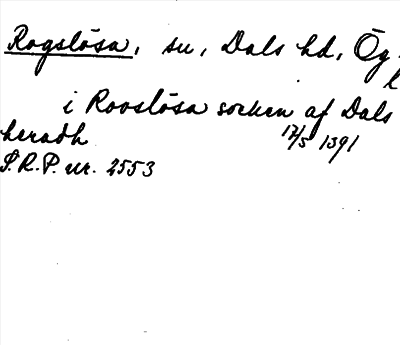 Rogslösa, sn, Dals hd, Ög.
l
i Rooslösa socken af Dals
heradh 17/5 1391
S.R.P. nr. 2553